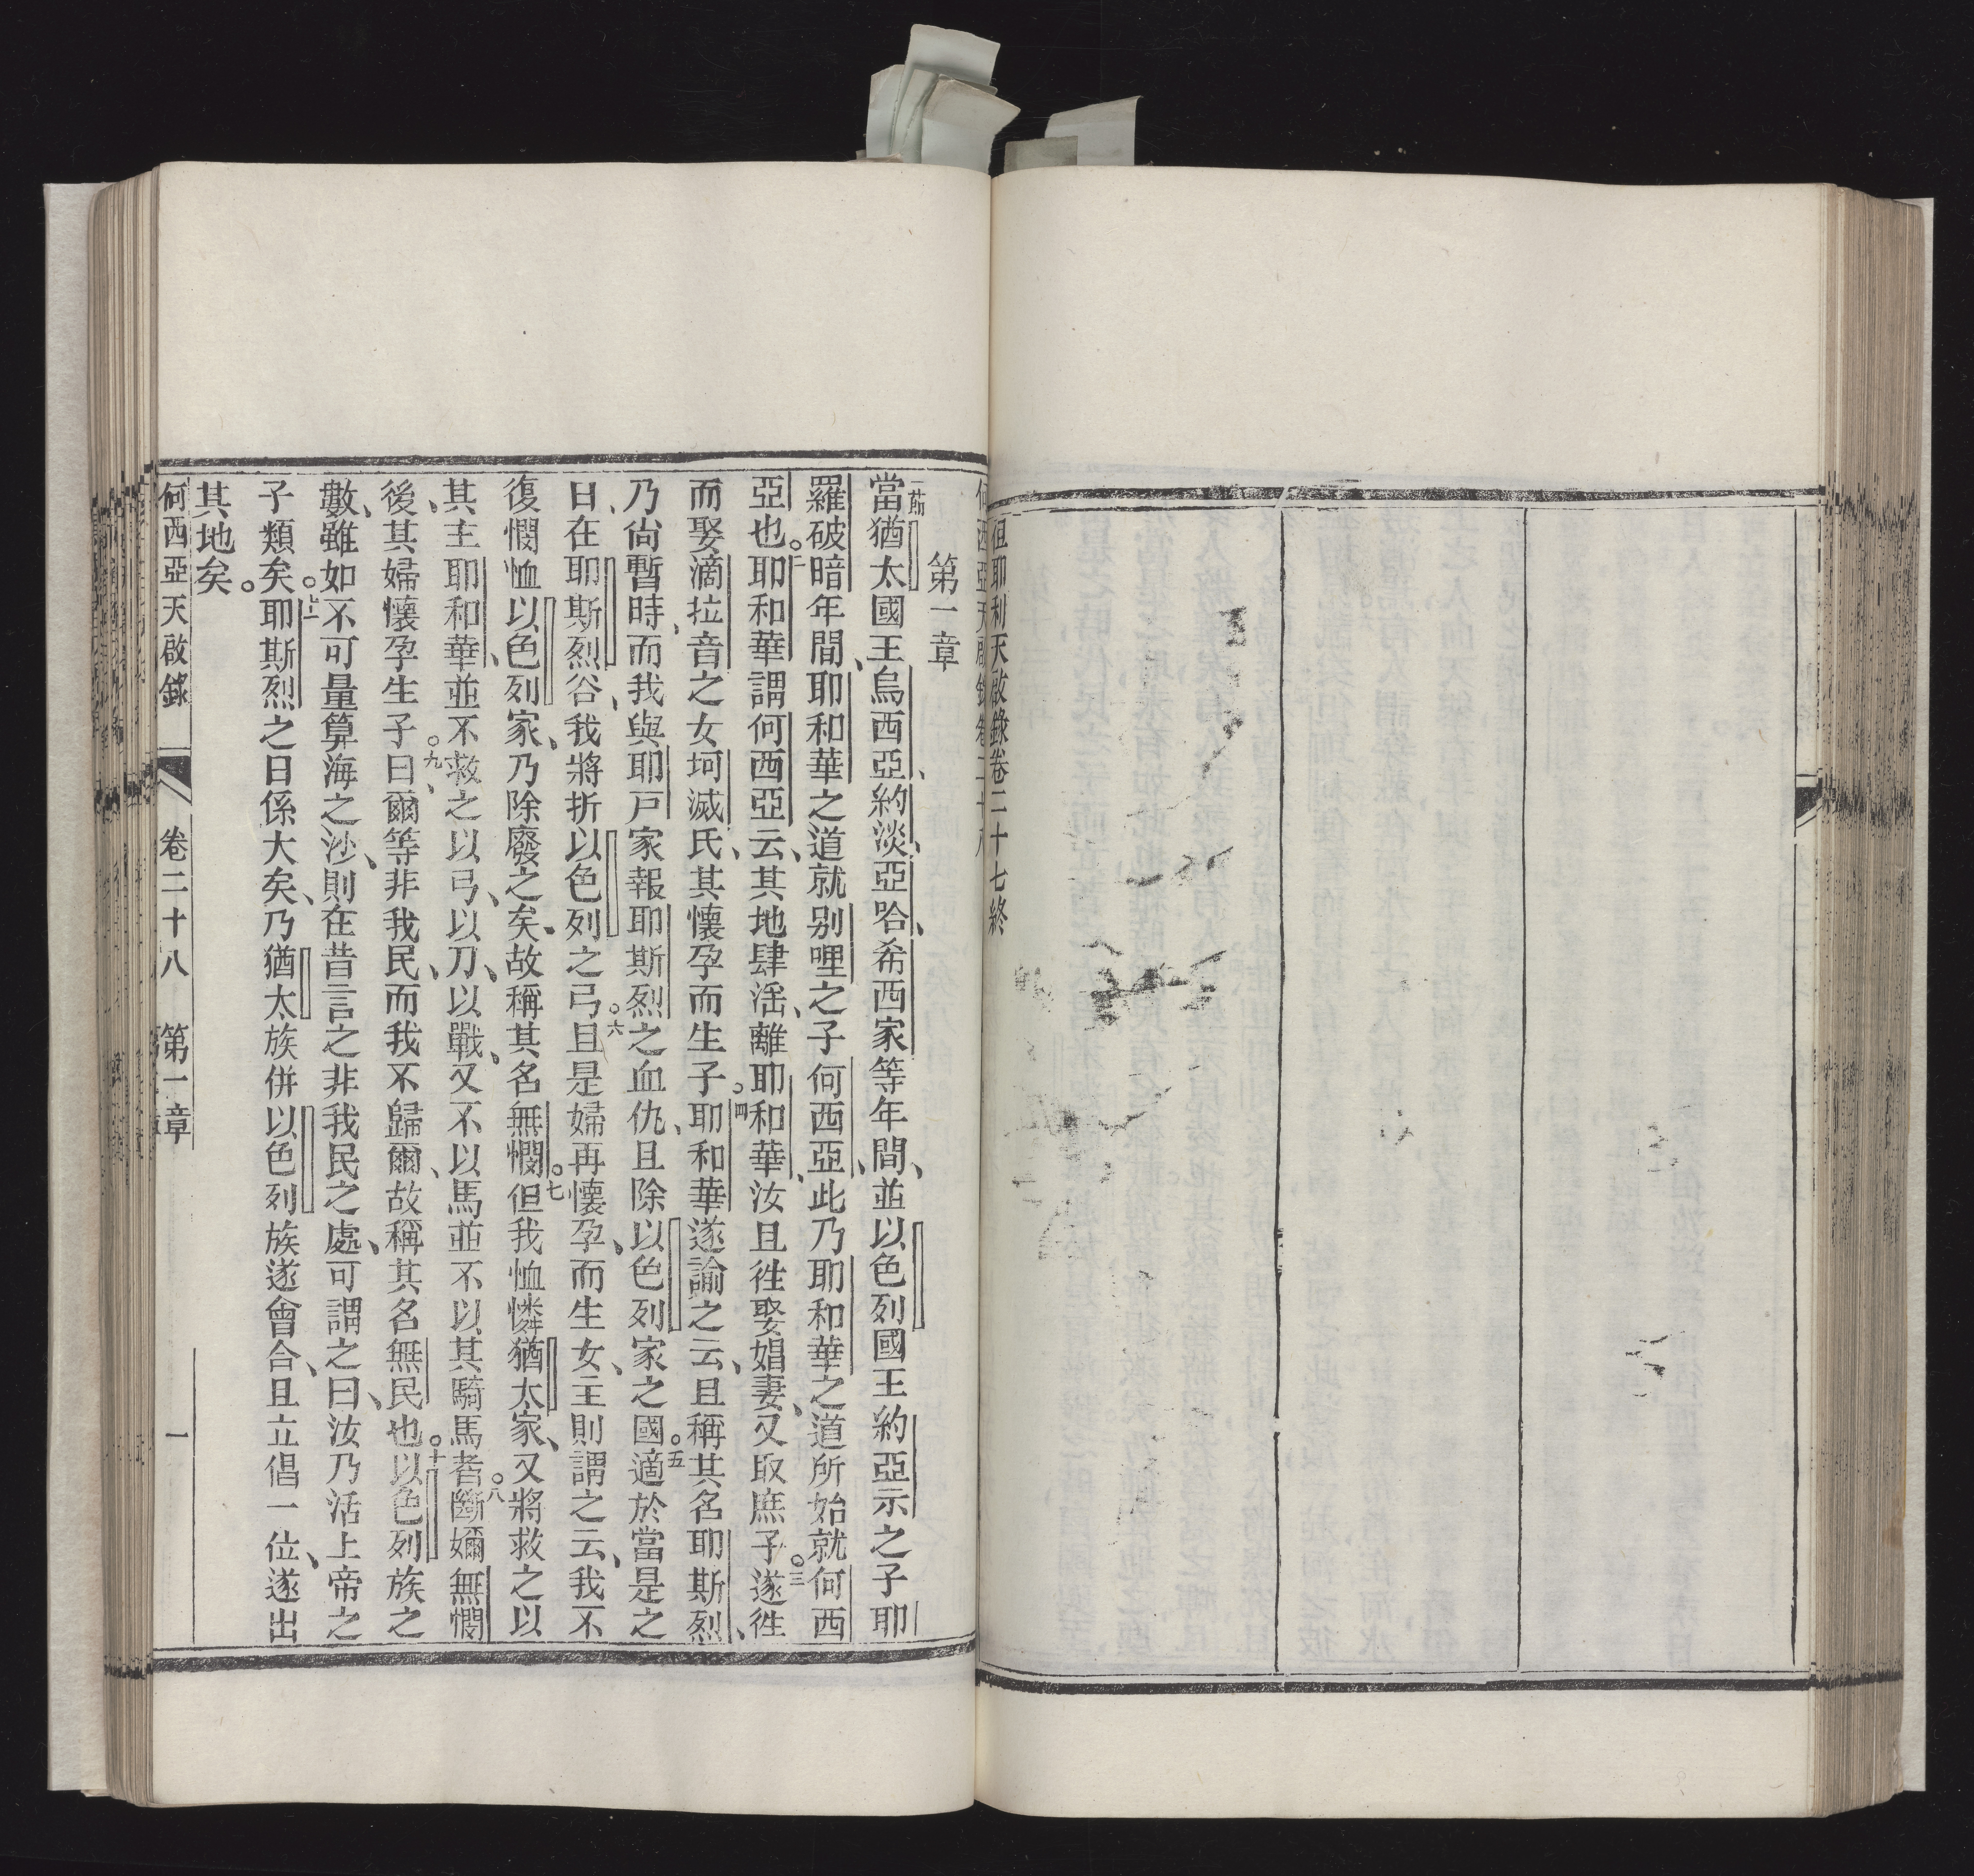 但耶利天啟錄卷二十七終
何西亞天啟錄卷二十八
第一章
一節當猶太國王烏西亞、約淡、亞哈希西家等年間、並以色列國王約亞示之子耶
羅破暗年間、耶和華之道就別哩之子何西亞、此乃耶和華之道所始就何西
亞也。二耶和華謂何西亞云、其地肆滛、離耶和華、汝且徃娶娼妻、又取庶子。三遂徃
而娶滴拉音之女坷滅氏、其懷孕而生子。四耶和華遂諭之云、且稱其名耶斯烈、
乃尙暫時、而我與耶戸家報耶斯烈之血仇、且除以色列家之國。五適於當是之
日、在耶斯烈谷、我將折以色列之弓。六且是婦再懷孕、而生女、主則謂之云、我不
復憫恤以色列家、乃除廢之矣、故稱其名無憫。七但我恤憐猶太家、又將救之以
其主耶和華、並不救之以弓、以刀、以戰、又不以馬並不以其騎馬者。八斷嬭無憫
後、其婦懷孕生子。九曰、爾等非我民、而我不歸爾、故稱其名無民也。十以色列族之
數、雖如不可量算海之沙、則在昔言之非我民之處、可謂之曰、汝乃活上帝之
子類矣。十一耶斯烈之日係大矣、乃猶太族併以色列族遂會合、且立倡一位、遂出
其地矣。
何西亞天啟錄 卷二十八 第一章 一